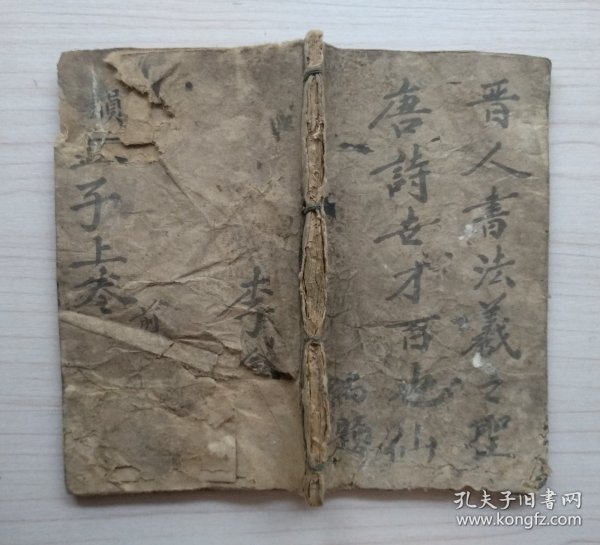 晋人書法羲之聖
唐詩才百也仙
題
李
子上叁
孔夫子旧书网
www.kongfz.com